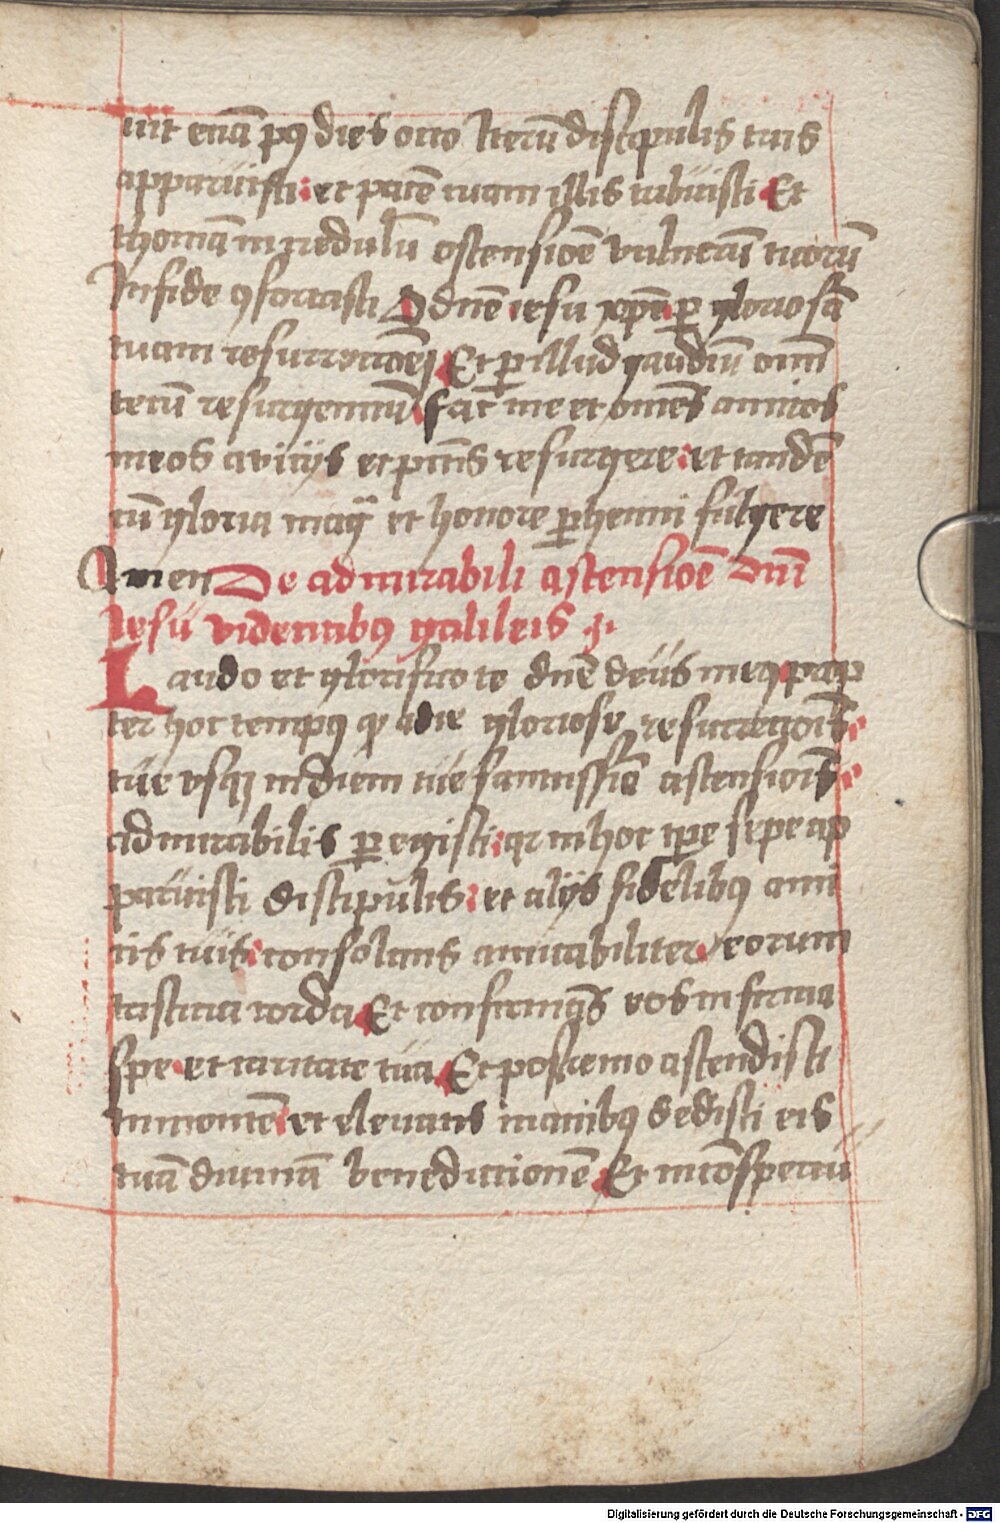 uit etiā pꝰ dies octo Iterū discipulis tuis
apparuisti: et pacē tuam illis tribuisti Et
thomā incredulū ostensioē vulnerū tuorū
In fide ꝯfortasti O dn̄e iesu xp̄e ꝑ gloriosā
tuam resurrectōeȝ Et ꝑ illud gaudiū oīm
tecū resurgentiū fac me et om̄es amicos
meos a vicijs et pctīs resurgere: et tandē
cū gloria et honore ꝑhenni fulgere
Amen De admirabili ascensiōe dn̄i
Iesu videntibꝰ galileis
Laudo et glorifico te dn̄e deus meꝰ prop
ter hoc tempꝰ qꝫ a die gloriose resurrectiōis
tue vsqꝫ in diem tue sanctissīe ascensiōis
admirabilis ꝑegisti: qꝛ in hoc tp̄e sepe ap
paruisti discipulis: et alijs fidelibꝰ ami
cis tuis: consolans amicabiliter eorum
tristicia corda Et confirmās eos in firma
spe et caritate tua Et postremo ascendisti
in montē et eleuatis manibꝰ dedisti eis
tuā diuinā benedictionē Et in cōspectu
Digitalisierung gefördert durch die Deutsche Forschungsgemeinschaft - DFG